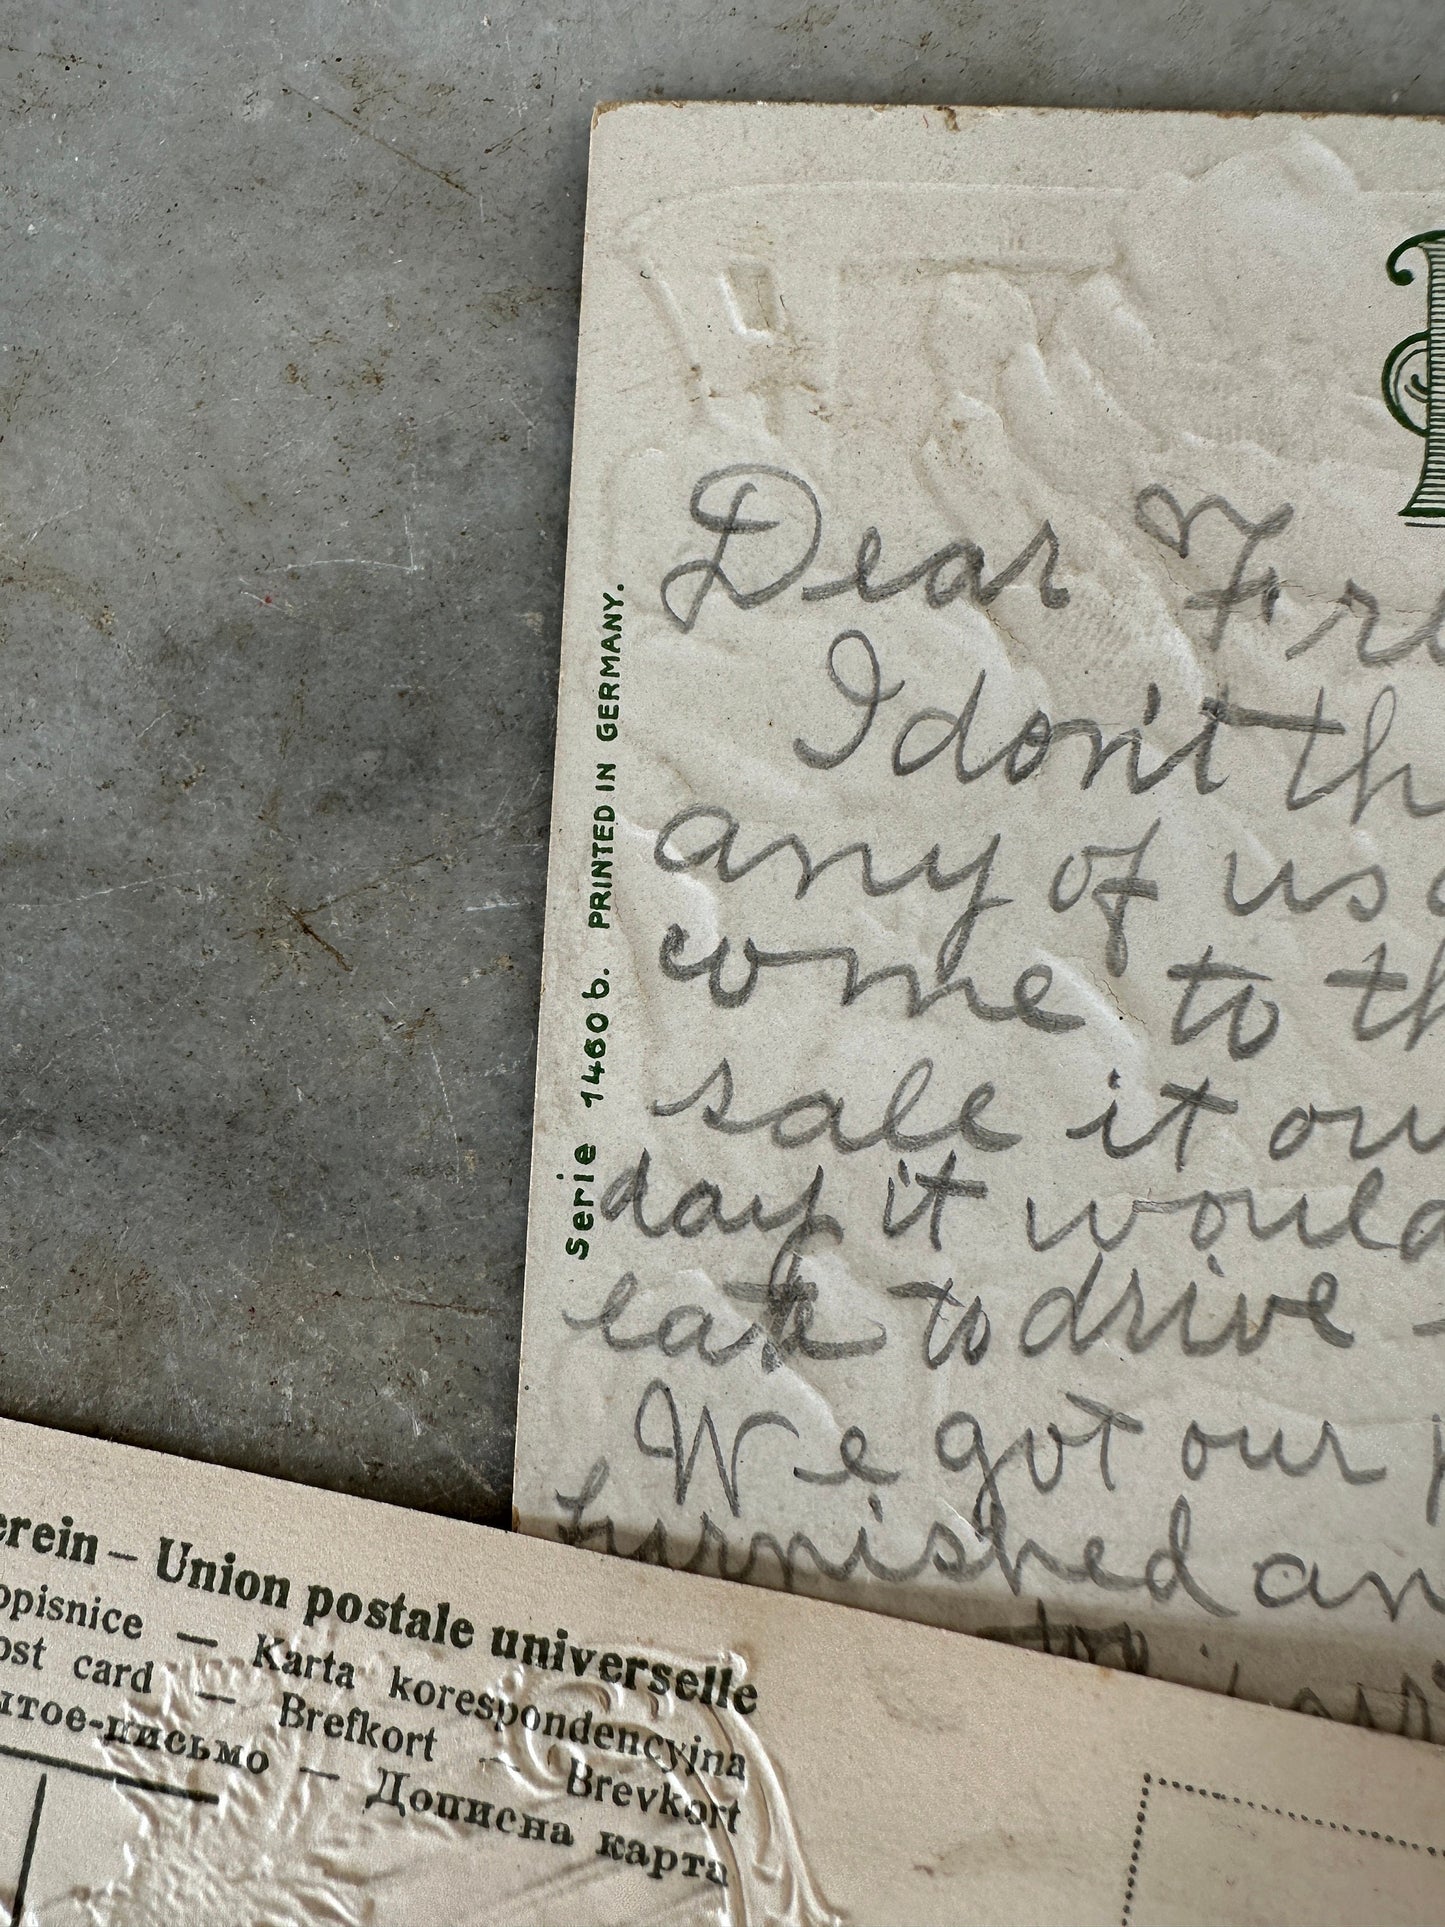 serie 1460 b. PRINTED IN GERMANY.
Dear
I don't
any of us
come to
sale it
day it would
to drive
We got our
furnished
erein – Union postale universelle
opisnice — Karta korespondencyjna
ost card — Brefkort — Brevkort
ытое-письмо — Дописна карта